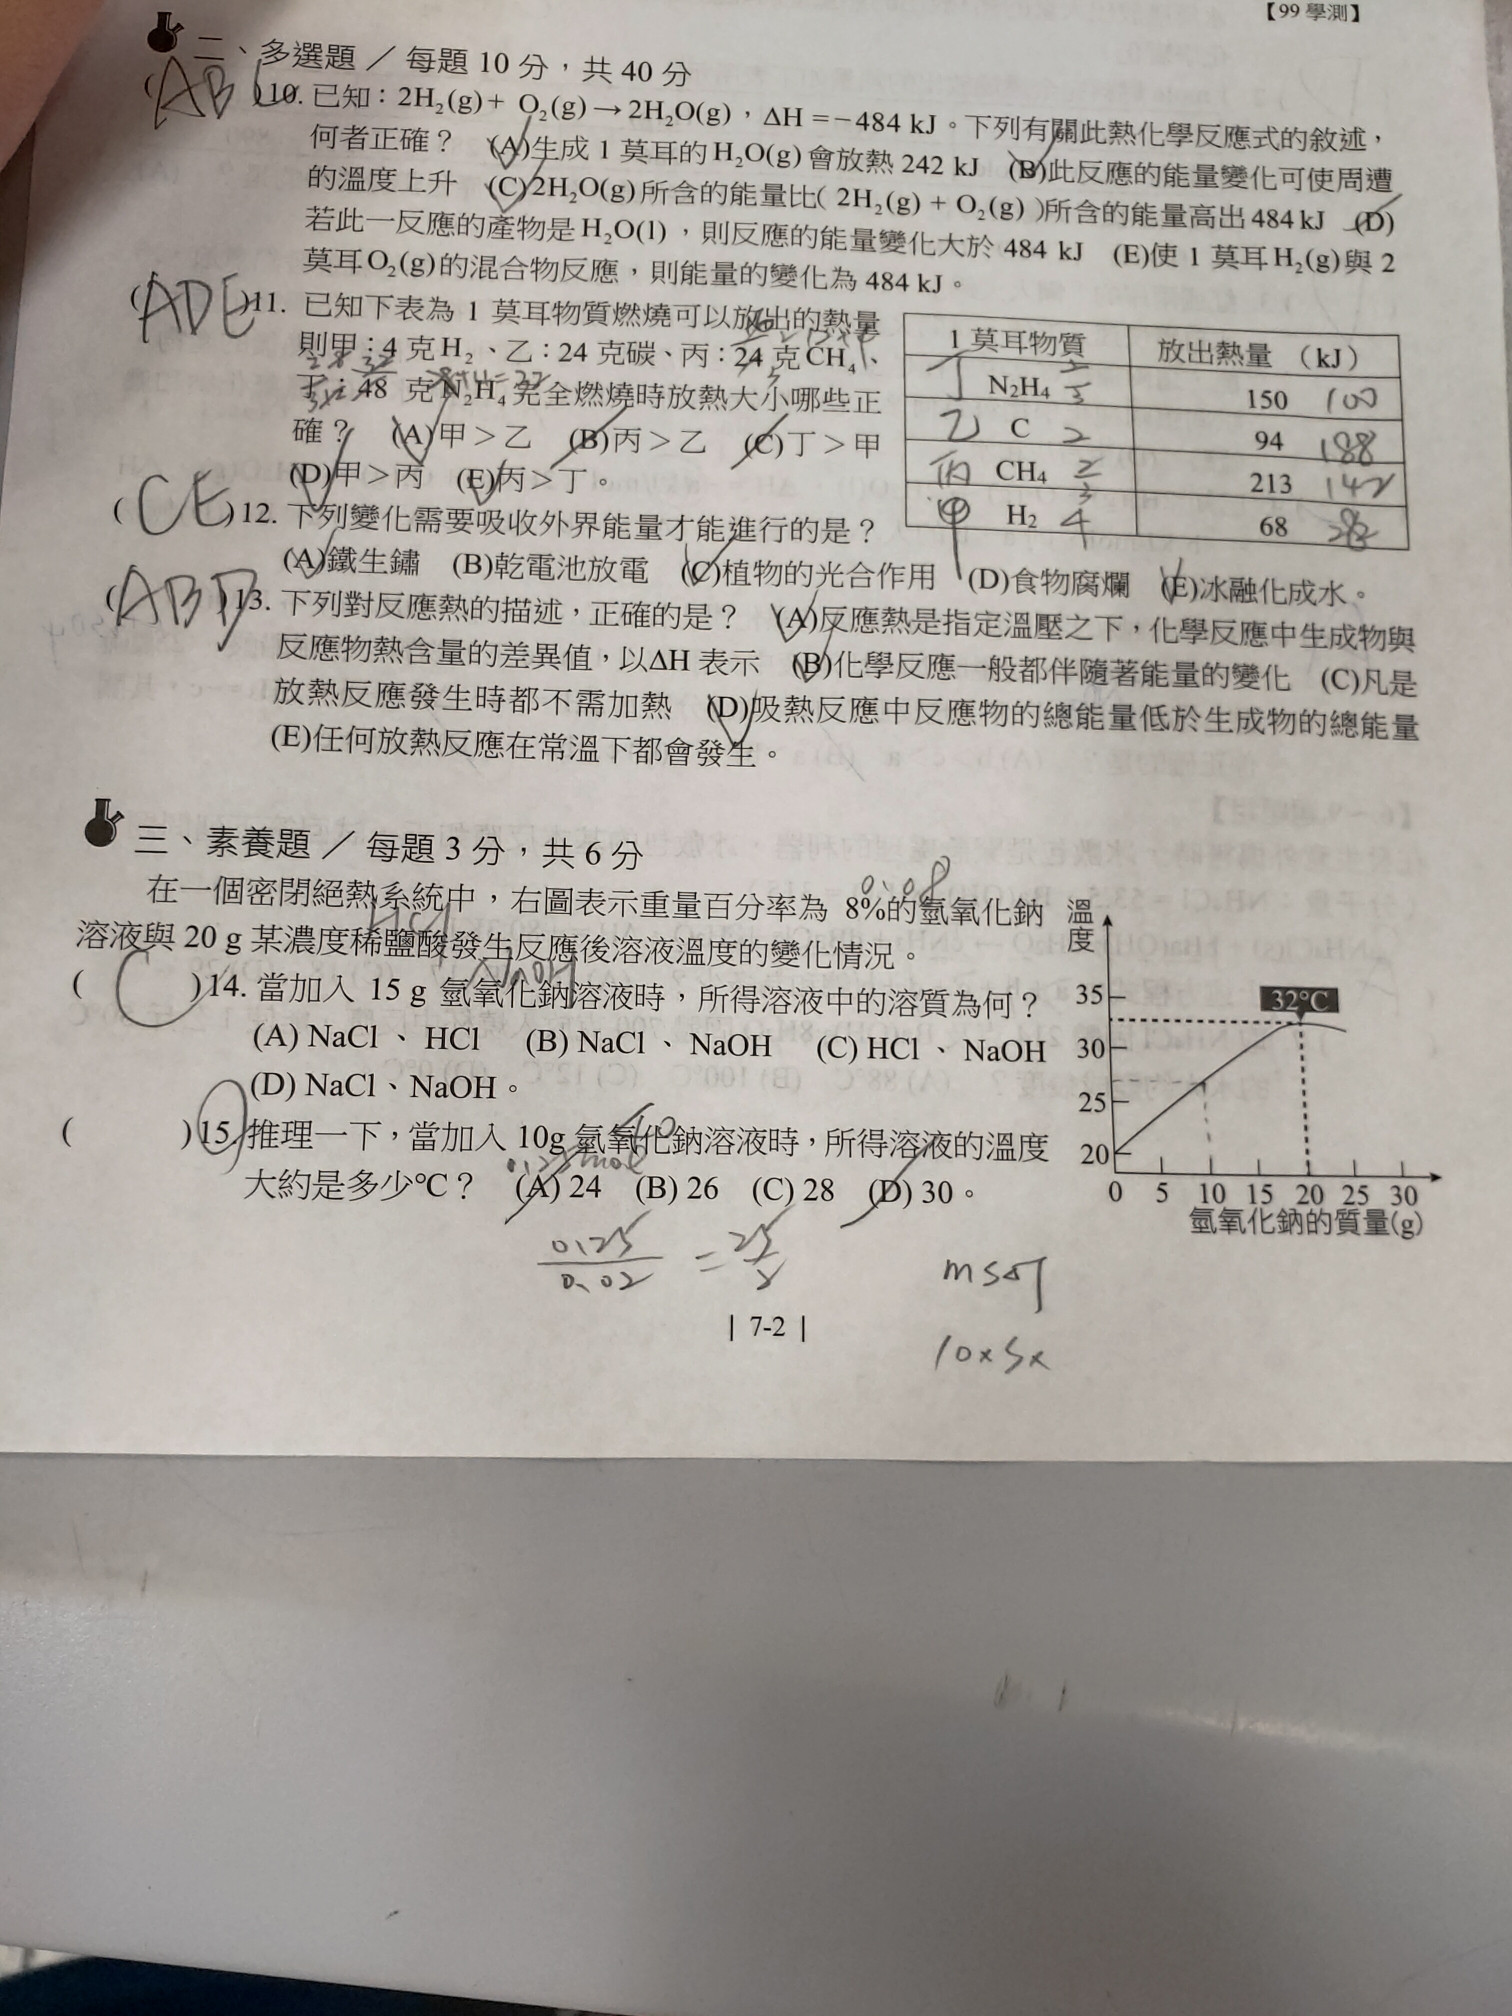 【99 學測】
二、多選題／每題 10 分，共 40 分
(AB )10. 已知：2H₂(g)+ O₂(g)→2H₂O(g)，ΔH =－484 kJ。下列有關此熱化學反應式的敘述，
何者正確？ (A)生成 1 莫耳的 H₂O(g) 會放熱 242 kJ (B)此反應的能量變化可使周遭
的溫度上升 (C)2H₂O(g) 所含的能量比( 2H₂(g) + O₂(g) )所含的能量高出 484 kJ (D)
若此一反應的產物是 H₂O(l)，則反應的能量變化大於 484 kJ (E)使 1 莫耳 H₂(g)與 2
莫耳 O₂(g)的混合物反應，則能量的變化為 484 kJ。
(ADE)11. 已知下表為 1 莫耳物質燃燒可以放出的熱量
則甲：4 克 H₂、乙：24 克碳、丙：24 克 CH₄、
丁：48 克 N₂H₄ 完全燃燒時放熱大小哪些正
確？ (A)甲＞乙 (B)丙＞乙 (C)丁＞甲
(D)甲＞丙 (E)丙＞丁。
1 莫耳物質 放出熱量 （kJ）
丁 N₂H₄ 150 100
乙 C 2 94 188
丙 CH₄ 213 142
甲 H₂ 4 68
(CE)12. 下列變化需要吸收外界能量才能進行的是？
(A)鐵生鏽 (B)乾電池放電 (C)植物的光合作用 (D)食物腐爛 (E)冰融化成水。
(ABD)13. 下列對反應熱的描述，正確的是？ (A)反應熱是指定溫壓之下，化學反應中生成物與
反應物熱含量的差異值，以ΔH 表示 (B)化學反應一般都伴隨著能量的變化 (C)凡是
放熱反應發生時都不需加熱 (D)吸熱反應中反應物的總能量低於生成物的總能量
(E)任何放熱反應在常溫下都會發生。
三、素養題／每題 3 分，共 6 分
0.08
在一個密閉絕熱系統中，右圖表示重量百分率為 8%的氫氧化鈉
HCl
溶液與 20 g 某濃度稀鹽酸發生反應後溶液溫度的變化情況。
NaOH
( C )14. 當加入 15 g 氫氧化鈉溶液時，所得溶液中的溶質為何？
(A) NaCl 、 HCl (B) NaCl 、 NaOH (C) HCl 、 NaOH
(D) NaCl、NaOH。
( )15. 推理一下，當加入 10g 氫氧化鈉溶液時，所得溶液的溫度
大約是多少℃？ (A) 24 (B) 26 (C) 28 (D) 30。
溫度
35
32°C
30
25
20
0 5 10 15 20 25 30
氫氧化鈉的質量(g)
40
0.25
0.02
=
msΔT
10×S×
| 7-2 |